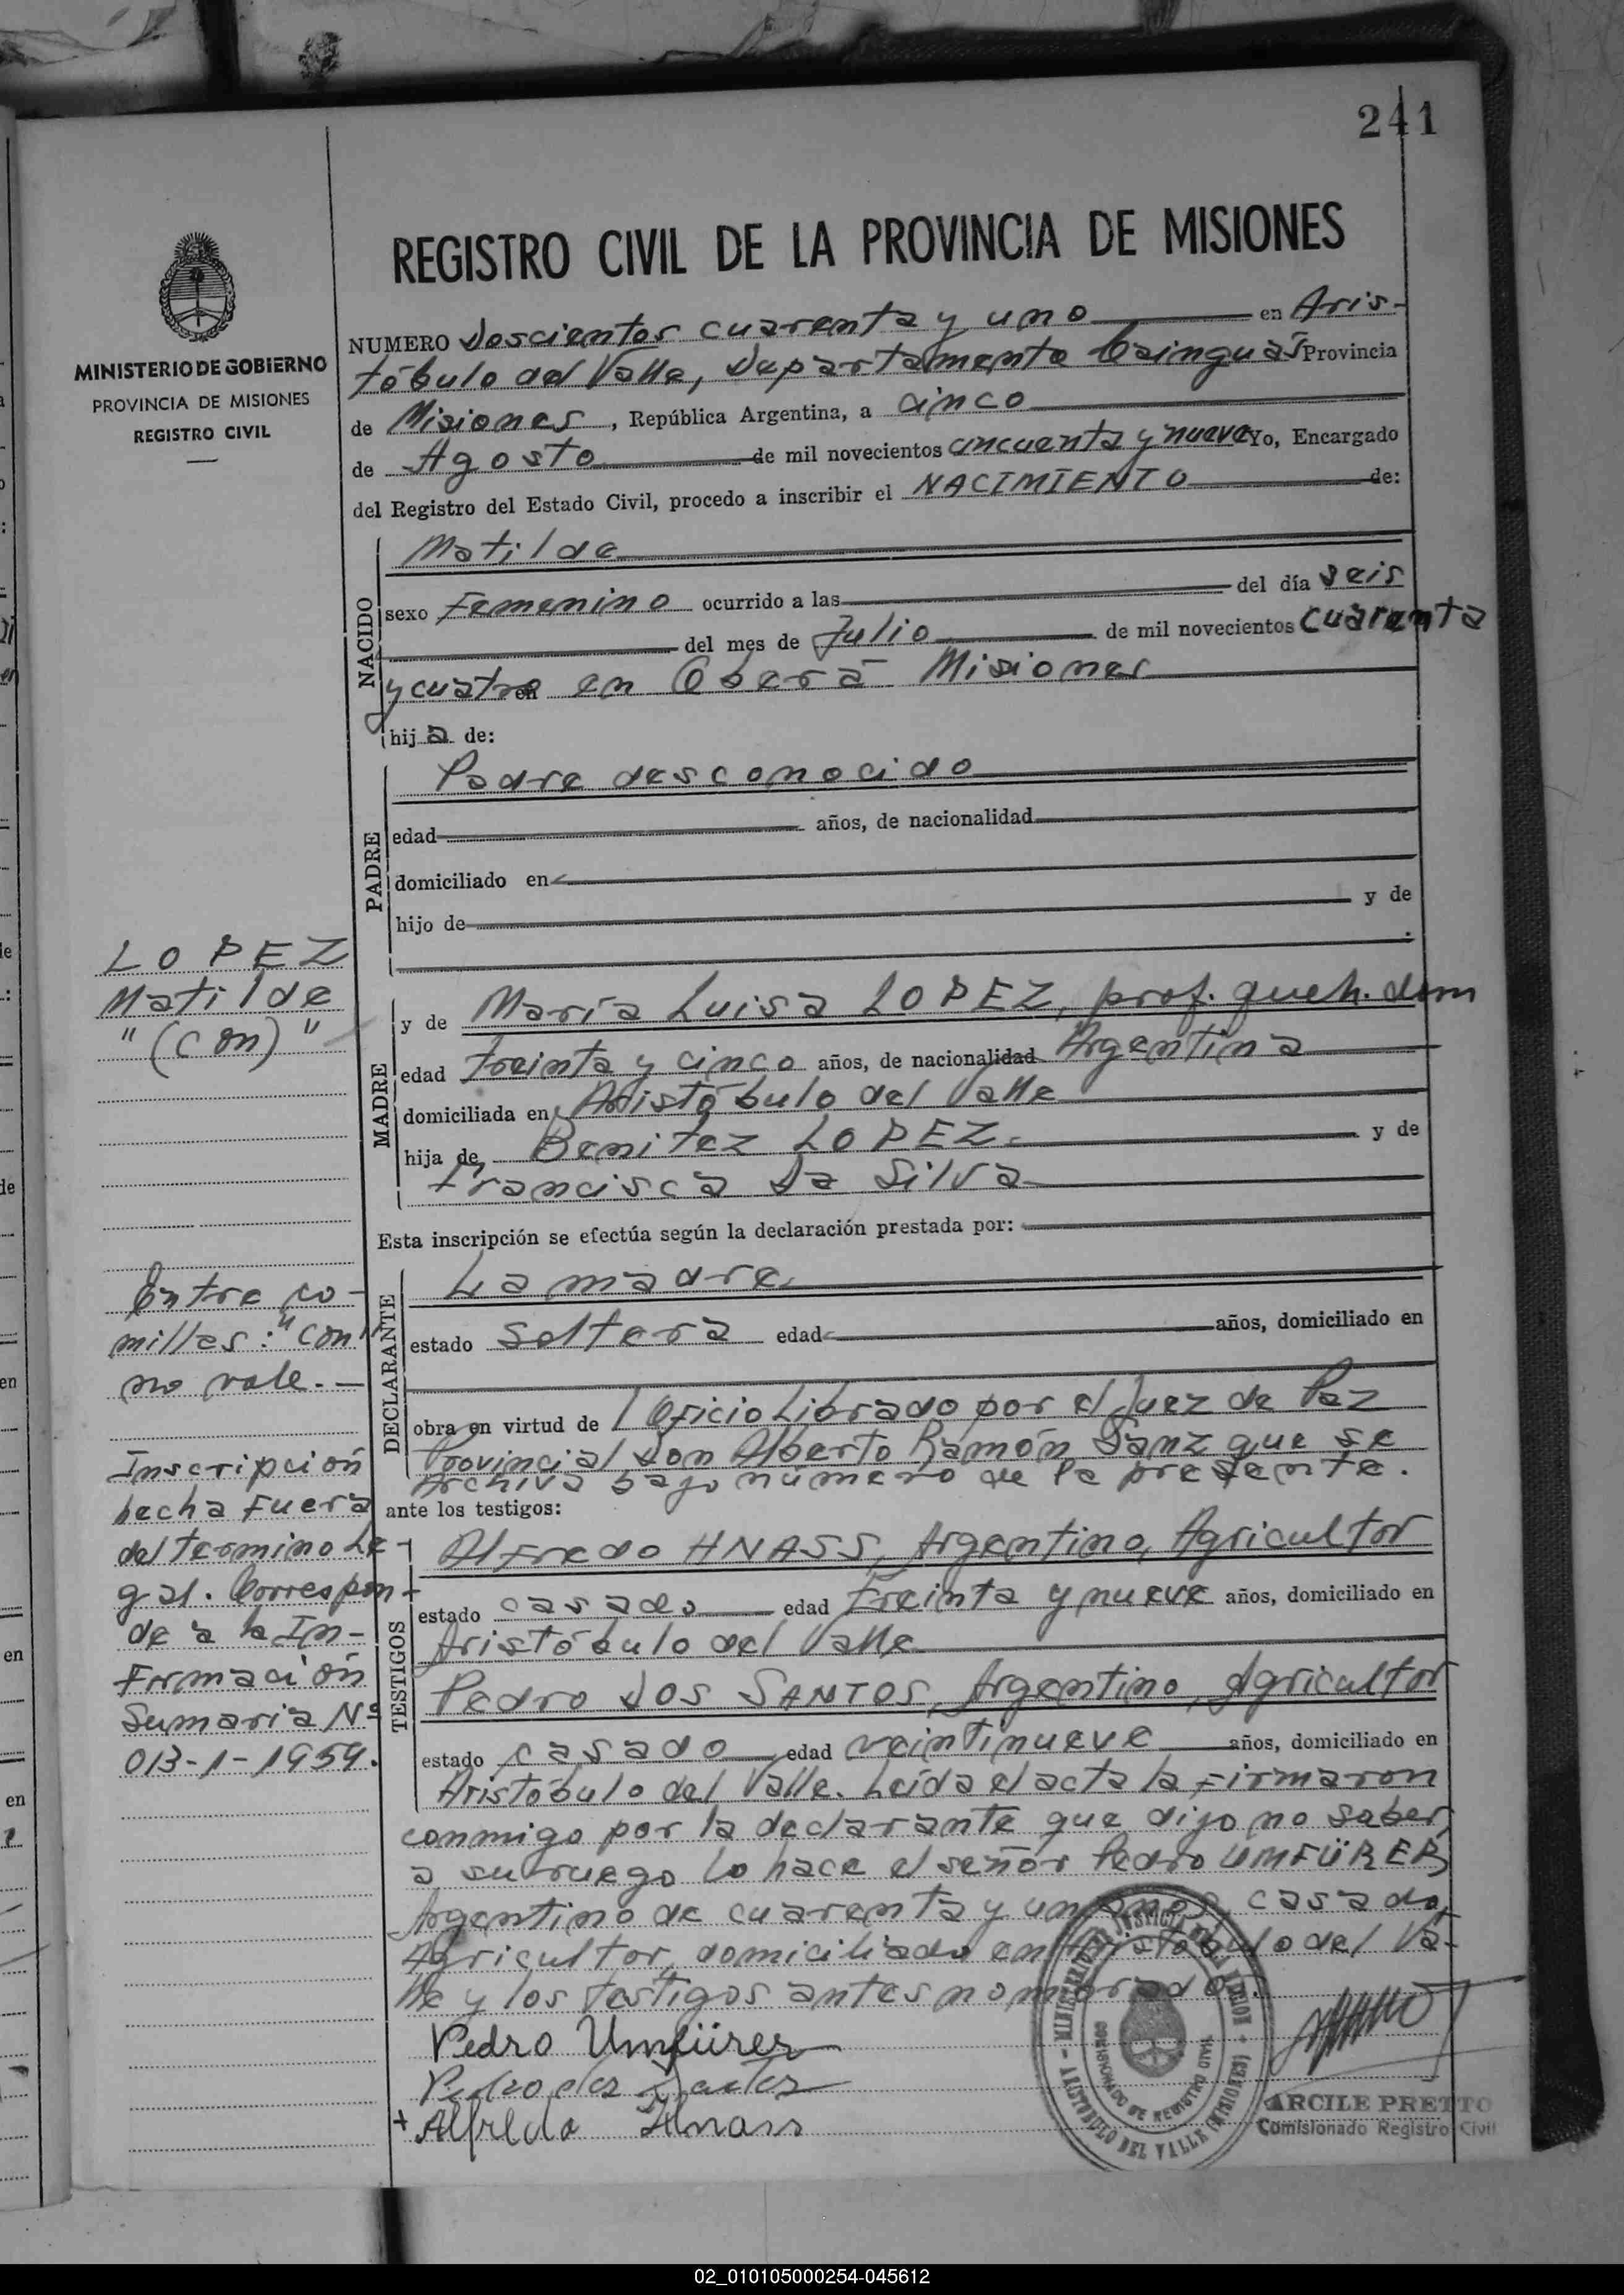 241
MINISTERIO DE GOBIERNO
PROVINCIA DE MISIONES
REGISTRO CIVIL
REGISTRO CIVIL DE LA PROVINCIA DE MISIONES
NUMERO Doscientos cuarenta y uno en Aris-
tóbulo del Valle, Departamento Cainguás Provincia
de Misiones, República Argentina, a cinco
de Agosto de mil novecientos cincuenta y nueve Yo, Encargado
del Registro del Estado Civil, procedo a inscribir el NACIMIENTO de:
NACIDO
Matilde
sexo Femenino ocurrido a las del día seis
del mes de Julio de mil novecientos cuarenta
y cuatro en en Oberá Misiones
hija de:
PADRE
Padre desconocido
edad años, de nacionalidad
domiciliado en
hijo de y de
MADRE
y de María Luisa LOPEZ, prof. queh. dom
edad treinta y cinco años, de nacionalidad Argentina
domiciliada en Aristóbulo del Valle
hija de Benitez LOPEZ y de
Francisca Da Silva
Esta inscripción se efectúa según la declaración prestada por:
DECLARANTE
La madre
estado soltera edad años, domiciliado en
obra en virtud de Oficio Librado por el Juez de Paz
Provincial Don Alberto Ramón Sanz que se
Archiva bajo número de la presente.
ante los testigos:
TESTIGOS
Alfredo HNASS, Argentino, Agricultor
estado casado edad treinta y nueve años, domiciliado en
Aristóbulo del Valle
Pedro DOS SANTOS, Argentino, Agricultor
estado casado edad veintinueve años, domiciliado en
Aristóbulo del Valle. Leída el acta la firmaron
conmigo por la declarante que dijo no saber,
a su ruego lo hace el señor Pedro UMFÜRER
Argentino de cuarenta y un años, casado,
Agricultor, domiciliado en Aristóbulo del Va-
lle y los testigos antes nombrados.
Pedro Umfürer
Pedro dos Santos
+ Alfredo Hnass
LOPEZ
Matilde
"(con)"
Entre co-
millas: "con"
no vale.-
Inscripción
hecha fuera
del termino Le-
gal. Correspon-
de a la In-
formación
Sumaria Nº
013-1-1959.
MINISTERIO DE JUSTICIA DE LA NACION
COMISIONADO DE REGISTRO CIVIL
ARISTOBULO DEL VALLE (MISIONES)
ARCILE PRETTO
Comisionado Registro Civil
02_010105000254-045612